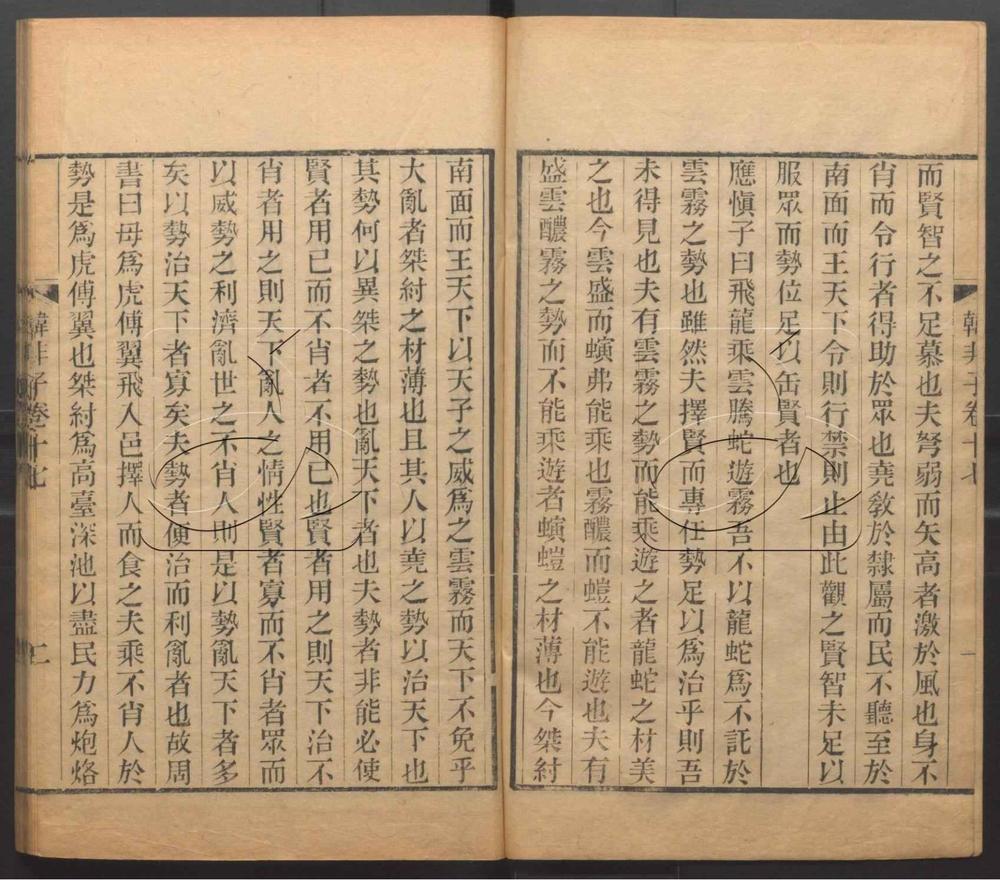 韓非子卷十七
一
而賢智之不足慕也夫弩弱而矢高者激於風也身不
肖而令行者得助於眾也堯敎於隸屬而民不聽至於
南面而王天下令則行禁則止由此觀之賢智未足以
服眾而勢位足以缶賢者也
應愼子曰飛龍乘雲騰蛇遊霧吾不以龍蛇爲不託於
雲霧之勢也雖然夫擇賢而專任勢足以爲治乎則吾
未得見也夫有雲霧之勢而能乘遊之者龍蛇之材美
之也今雲盛而螾弗能乘也霧醲而螘不能遊也夫有
盛雲醲霧之勢而不能乘遊者螾螘之材薄也今桀紂
南面而王天下以天子之威爲之雲霧而天下不免乎
大亂者桀紂之材薄也且其人以堯之勢以治天下也
其勢何以異桀之勢也亂天下者也夫勢者非能必使
賢者用已而不肖者不用已也賢者用之則天下治不
肖者用之則天下亂人之情性賢者寡而不肖者眾而
以威勢之利濟亂世之不肖人則是以勢亂天下者多
矣以勢治天下者寡矣夫勢者便治而利亂者也故周
書曰毋爲虎傅翼飛入邑擇人而食之夫乘不肖人於
勢是爲虎傅翼也桀紂爲高臺深池以盡民力爲炮烙
韓非子卷十七
二